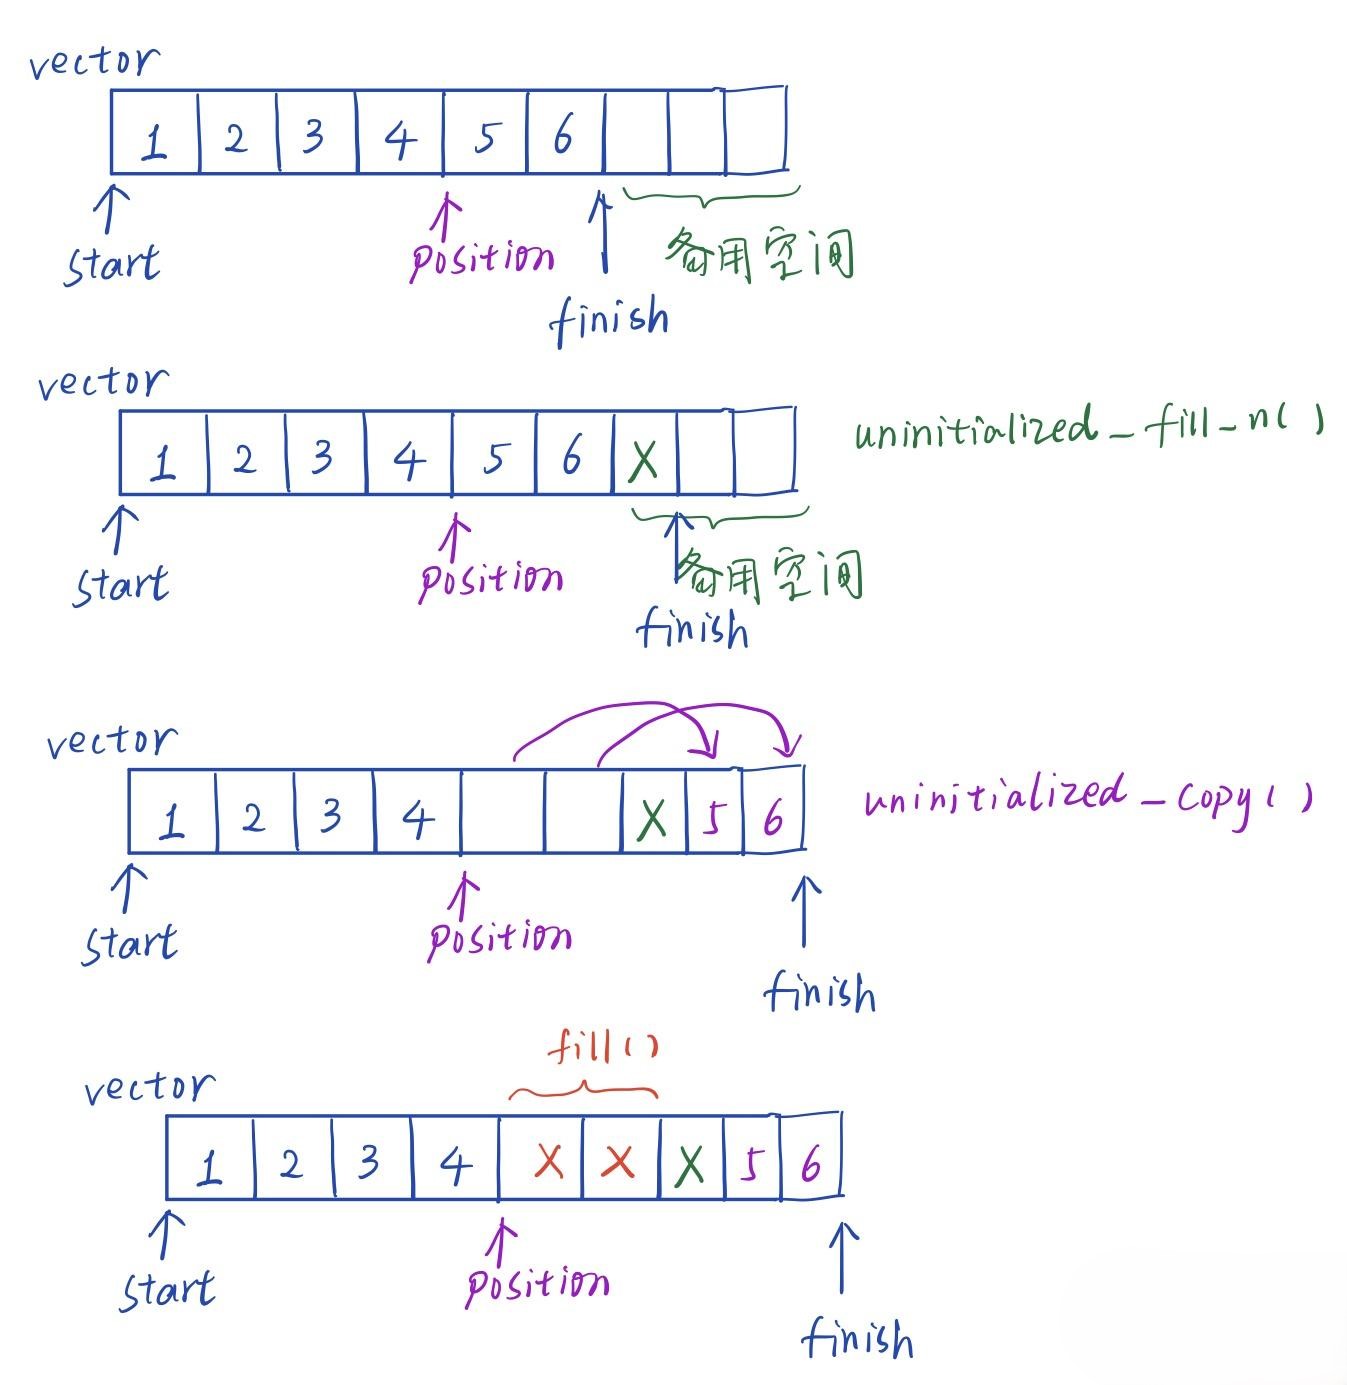 vector
1 2 3 4 5 6
start position finish 备用空间
vector
1 2 3 4 5 6 X
uninitialized_fill_n()
start position finish 备用空间
vector
1 2 3 4 X 5 6
uninitialized_copy()
start position finish
fill()
vector
1 2 3 4 X X X 5 6
start position finish